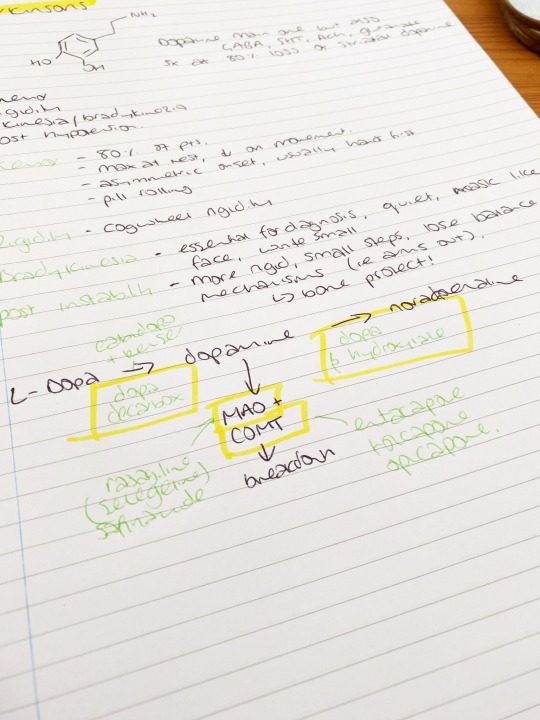 rkinsons
NH₂
HO
OH
Dopamine main one but also
GABA, 5HT, Ach, glutamate
Sx at 80% loss of striatal dopamine
remor
igidity
kinesia/bradykinezia
ost hypotension.
remor - 80% of pts.
- max at rest, ↓ on movement.
- asymmetric onset, usually hands first
- pill rolling
Rigidity - cogwheel rigidity
Bradykinesia - essential for diagnosis, quiet, mask like
face, write small
post instability - more rigid, small steps, lose balance
mechanisms (ie arms out).
↳ bone protect!
+ bense
L-DOPA → dopamine → noradrenaline
dopa
decarbox
dopa
β hydroxylase
MAO +
COMT
breakdown
rasagiline
(selegeline)
safinamide
entacapone
tolcapone
opicapone.